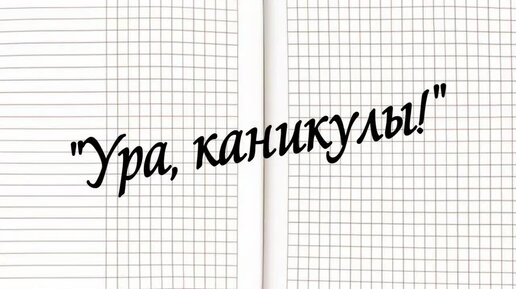 "Ура, каникулы!"